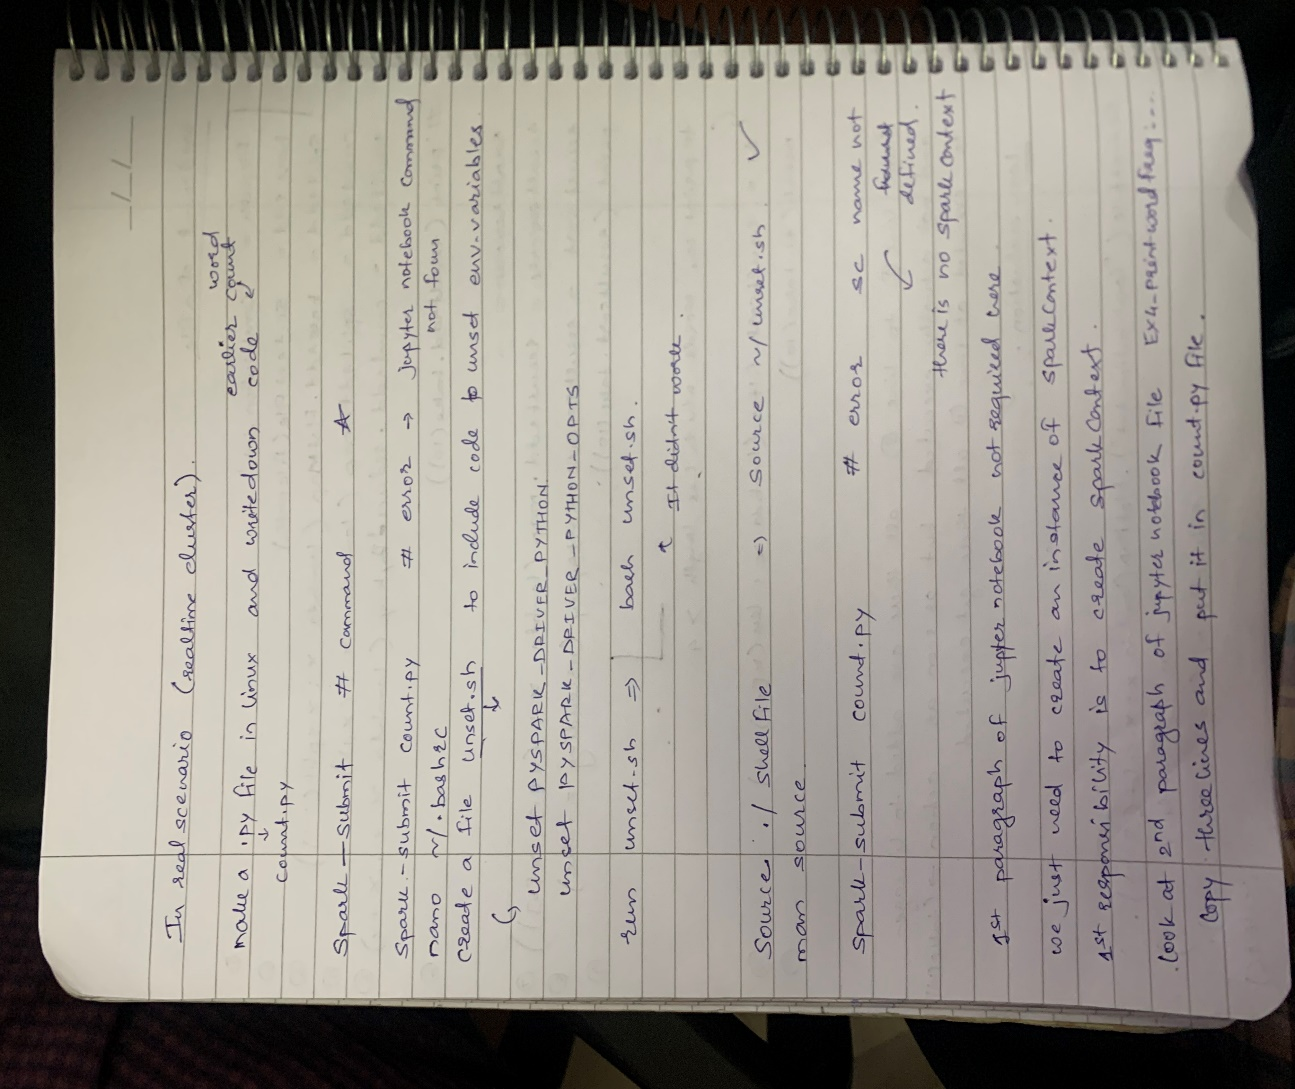 __/__/__
In real scenario (realtime cluster).
make a .py file in linux and writedown code earlier word count
↓
count.py
Spark-submit # command ☆
Spark-submit count.py # error → jupyter notebook command not foun
nano ~/.bashrc
create a file unset.sh to include code to unset env-variables.
↳ unset PYSPARK_DRIVER_PYTHON
unset PYSPARK_DRIVER_PYTHON_OPTS
run unset.sh ⇒ bash unset.sh.
↑ It didn't work.
Source ./shellfile ⇒ source ~/unset.sh ✓
man source
spark-submit count.py # error sc name not
defined.
there is no sparkcontext
1st paragraph of jupter notebook not required here
we just need to create an instance of sparkContext.
1st responsibility is to create sparkContext.
.look at 2nd paragraph of jupyter notebook file Ex4-printwordfreq....
Copy three lines and put it in count.py file.